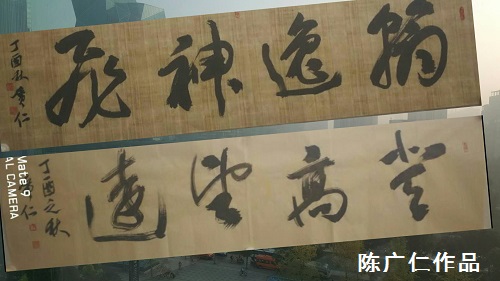 翰逸神飛
丁酉秋 廣仁
登高望遠
丁酉之秋
廣仁
Mate 9
AL CAMERA
陈广仁作品